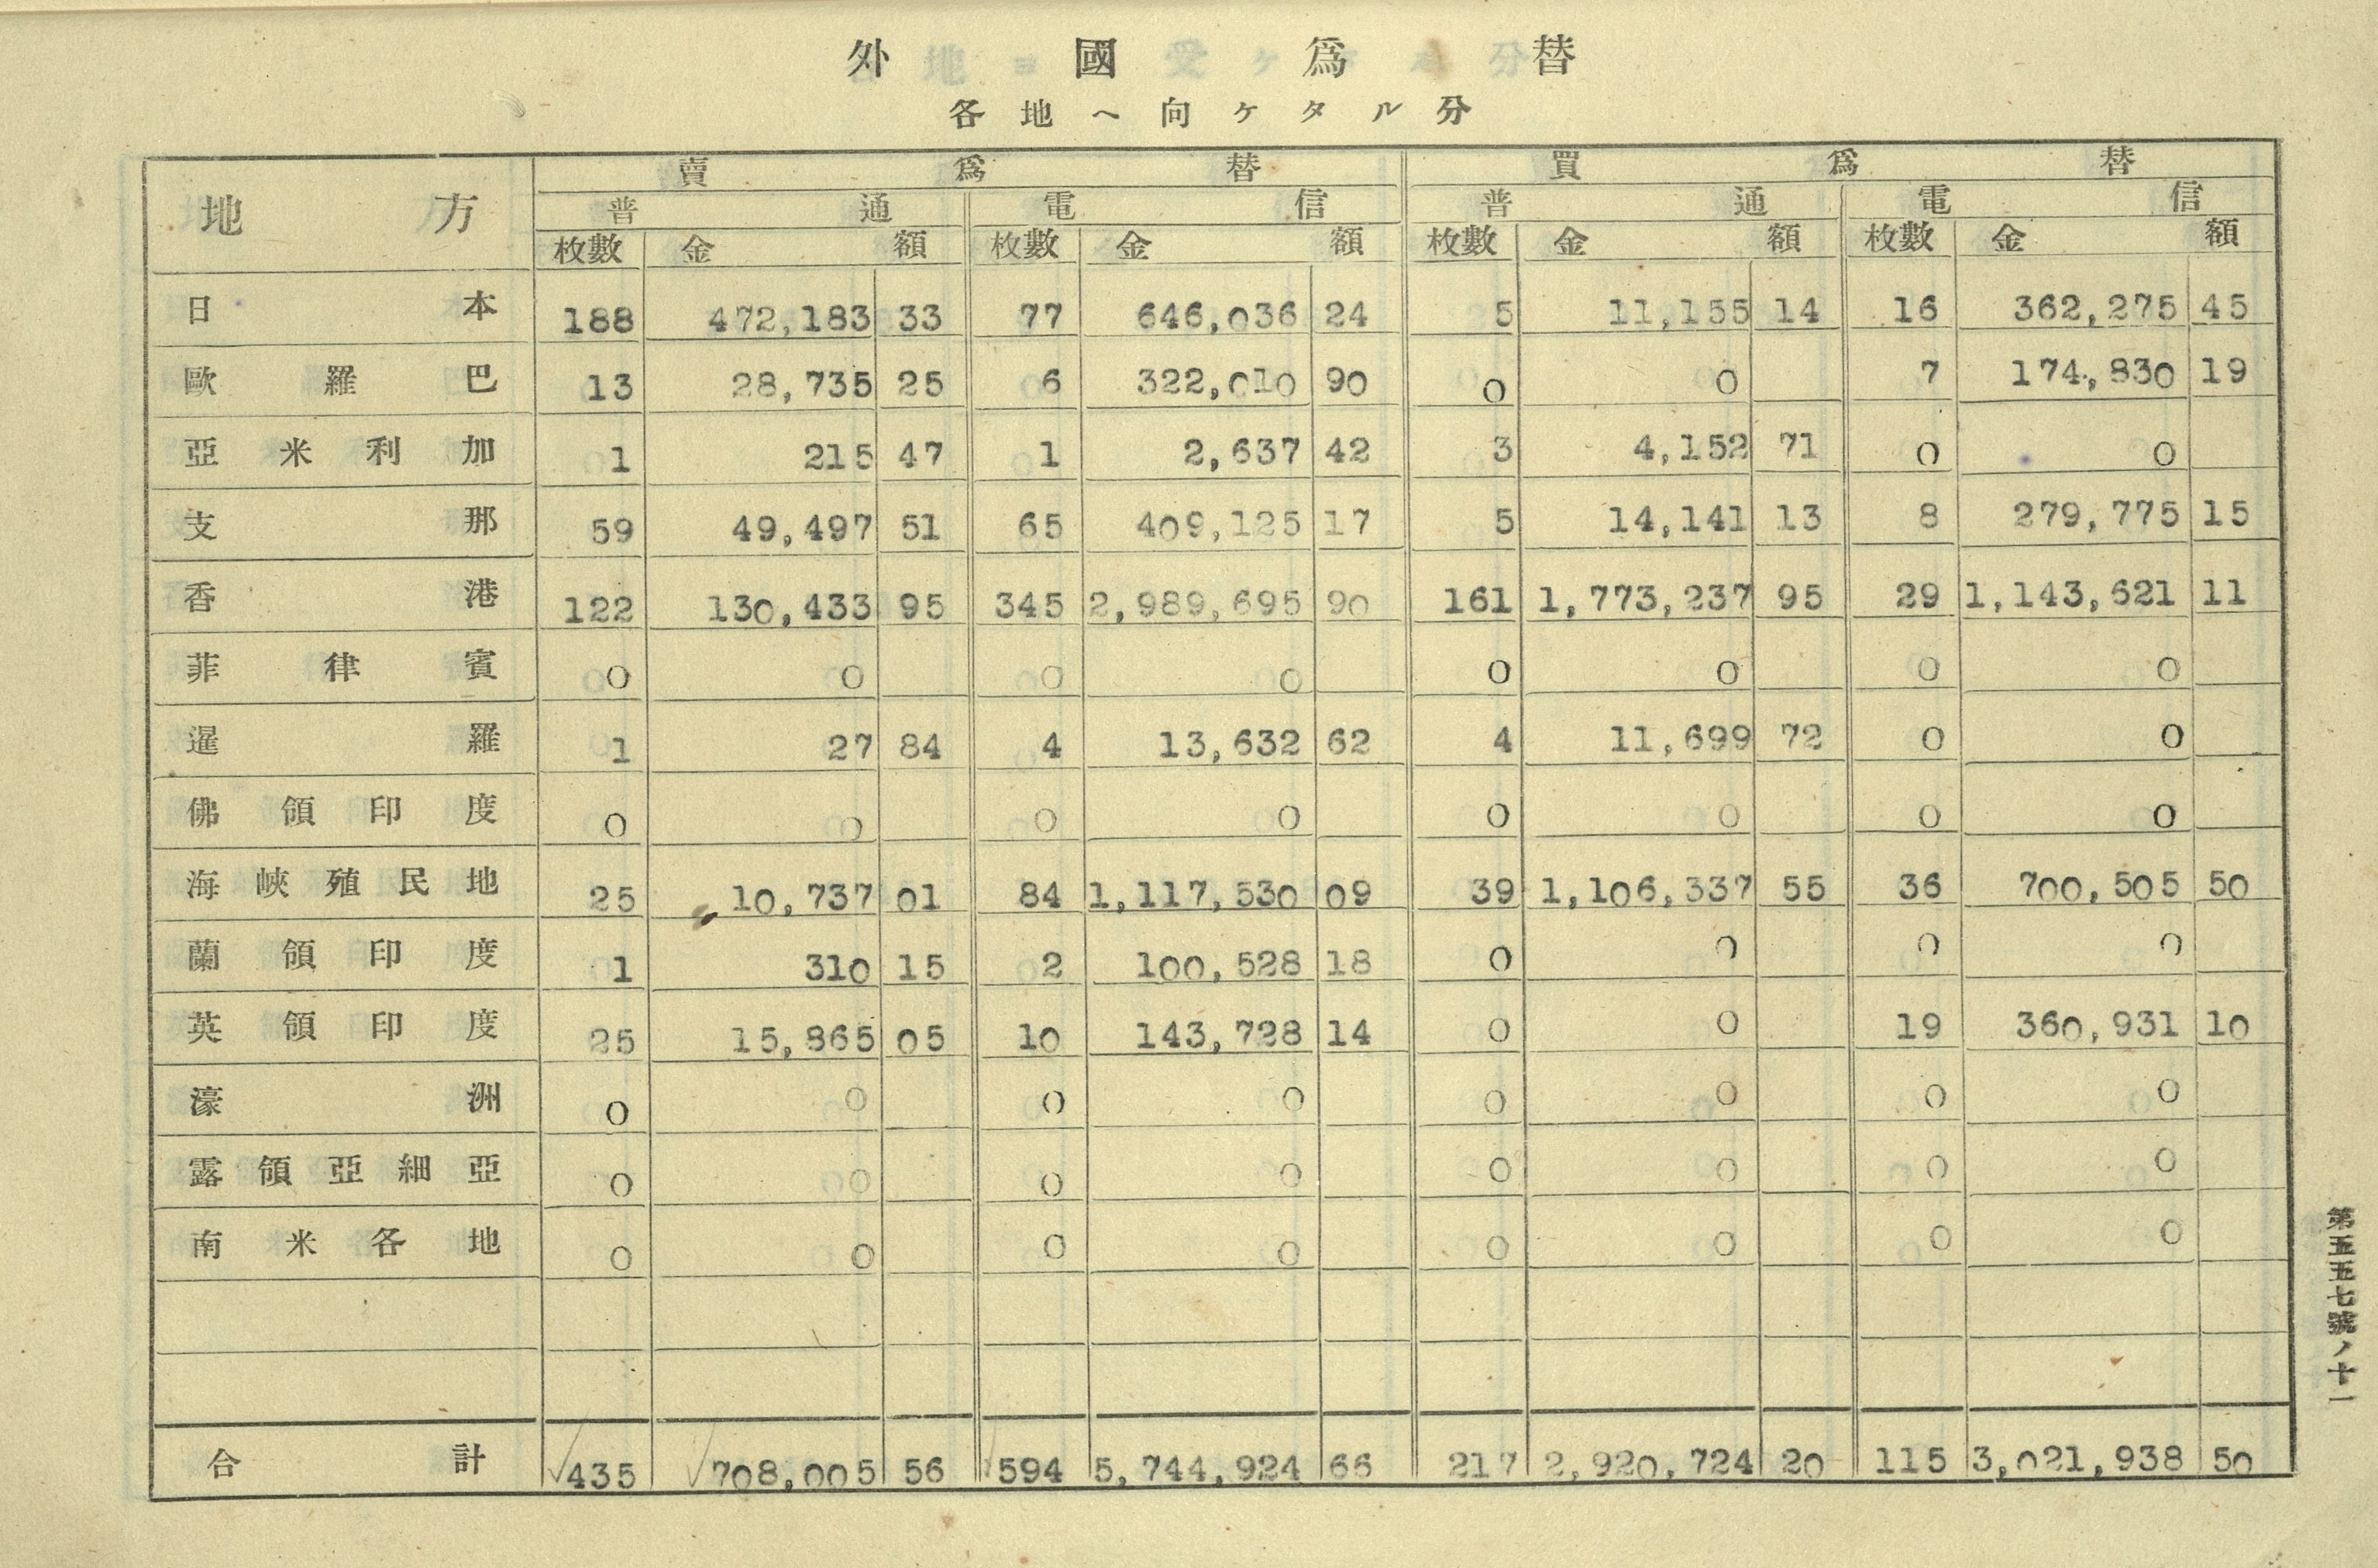 外國爲替
各地ヘ向ケタル分
地方 賣爲替 買爲替
普通 電信 普通 電信
枚數 金額 枚數 金額 枚數 金額 枚數 金額
日本 188 472,183 33 77 646,036 24 5 11,155 14 16 362,275 45
歐羅巴 13 28,735 25 6 322,010 90 0 0 7 174,830 19
亞米利加 1 215 47 1 2,637 42 3 4,152 71 0 0
支那 59 49,497 51 65 409,125 17 5 14,141 13 8 279,775 15
香港 122 130,433 95 345 2,989,695 90 161 1,773,237 95 29 1,143,621 11
菲律賓 0 0 0 0 0 0 0 0
暹羅 1 27 84 4 13,632 62 4 11,699 72 0 0
佛領印度 0 0 0 0 0 0 0 0
海峽殖民地 25 10,737 01 84 1,117,530 09 39 1,106,337 55 36 700,505 50
蘭領印度 1 310 15 2 100,528 18 0 0 0 0
英領印度 25 15,865 05 10 143,728 14 0 0 19 360,931 10
濠洲 0 0 0 0 0 0 0 0
露領亞細亞 0 0 0 0 0 0 0 0
南米各地 0 0 0 0 0 0 0 0
合計 435 708,005 56 594 5,744,924 66 217 2,920,724 20 115 3,021,938 50
第五五七號ノ十一